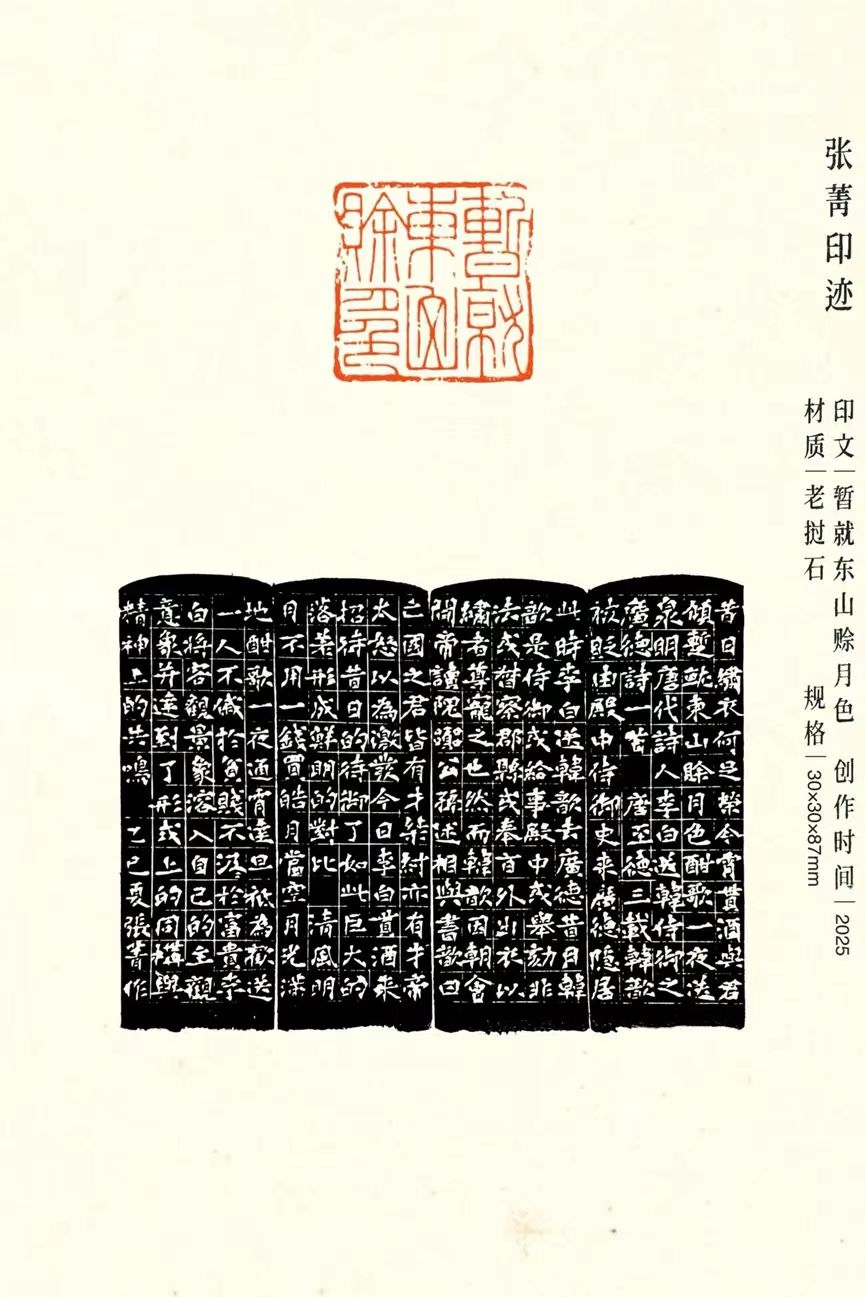 张菁印迹
印文｜暂就东山赊月色 创作时间｜2025
材质｜老挝石 规格｜30x30x87mm
暫就
東山
賒月色
昔日繡衣何足榮今宵貰酒與君
傾暫就東山賒月色酣歌一夜送
泉明唐代詩人李白送韓侍御之
廣德詩一首 唐至德三載韓歆
被貶由殿中侍御史来廣德隱居
此時李白送韓歆去廣德昔日韓
歆是侍御或給事殿中或舉劾非
法或督察郡縣或奉旨外出衣以
繡者尊寵之也然而韓歆因朝會
間帝讀隗囂公孫述相與書歆曰
亡國之君皆有才桀紂亦有才帝
大怒以為激發今日李白貰酒来
招待昔日的侍御了如此巨大的
落差形成鮮明的對比 清風明
月不用一錢買皓月當空月光滿
地酣歌一夜通宵達旦祇為歡送
一人不慽於貧賤不汲於富貴李
白将客觀景象溶入自己的主觀
意象并達到了形式上的同構與
精神上的共鳴 乙巳夏張菁作